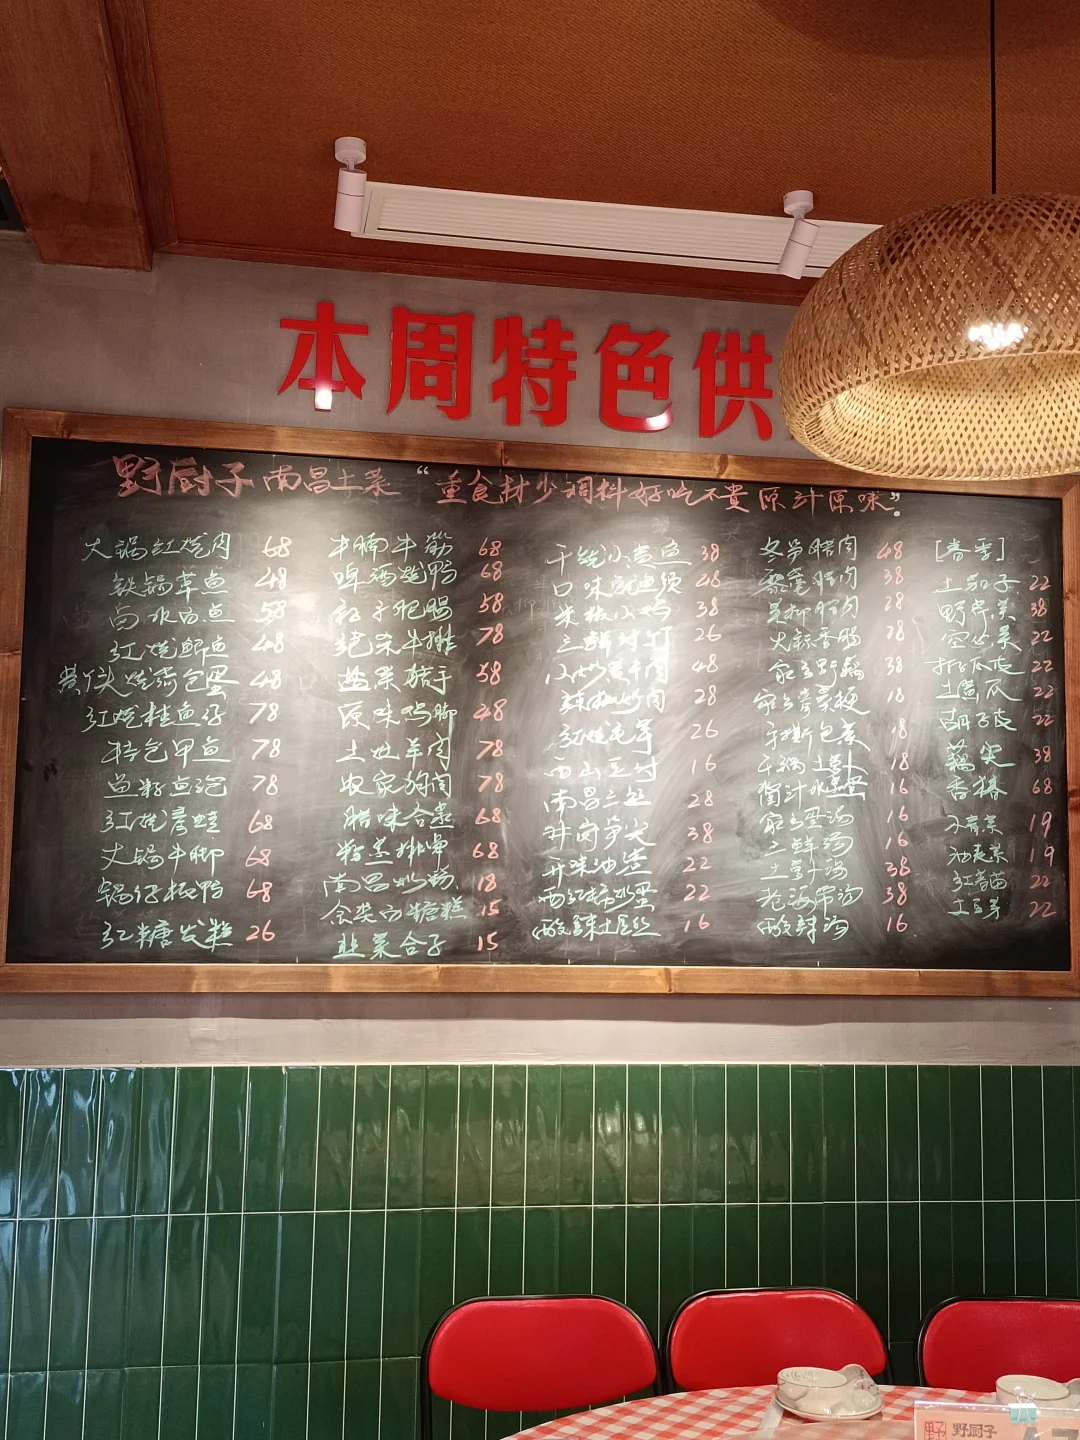 本周特色供
野厨子 南昌土菜 “重食材少调料好吃不贵原汁原味”
大锅红烧肉 68
铁锅草鱼 48
卤水白鱼 58
红烧鲫鱼 48
黄伢头烧荷包蛋 48
红烧桂鱼仔 78
78
鱼籽鱼泡 78
68
大锅牛脚 68
锅仔板鸭 68
红糖发糕 26
牛腩牛筋 68
啤酒烧鸭 68
肥肠 58
牛排 78
盐菜猪手 58
原味鸡脚 48
土灶羊肉 78
农家狗肉 78
腊味合蒸 68
粉蒸排骨 68
南昌炒粉 18
白糖糕 15
韭菜合子 15
干烧小黄鱼 38
口味鱿鱼须 48
米椒小鸡 38
三鲜 26
小炒黄牛肉 48
辣椒炒肉 28
红烧毛芋 26
西山豆付 16
南昌三 28
井岗笋尖 38
开味油渣 22
西红柿炒蛋 22
酸辣土豆丝 16
冬笋腊肉 48
藜蒿腊肉 38
腊肉 28
大蒜香肠 78
38
18
手撕包菜 18
干锅土 18
16
16
三鲜汤 16
38
老 海带汤 38
酸辣汤 16
[春季]
土茄子 22
野芹菜 38
空心菜 22
22
土黄瓜 22
22
藕尖 38
香椿 68
小青菜 19
油麦菜 19
红薯苗 22
22
野厨子